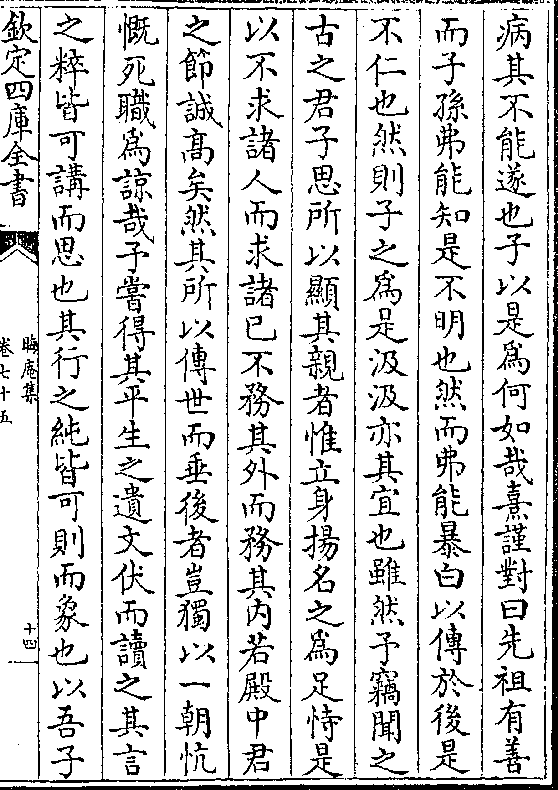 病其不能遂也子以是爲何如哉熹謹對曰先祖有善
而子孫弗能知是不明也然而弗能暴白以傳於後是
不仁也然則子之爲是汲汲亦其宜也雖然予竊聞之
古之君子思所以顯其親者惟立身揚名之爲足恃是
以不求諸人而求諸已不務其外而務其内若殿中君
之節誠髙矣然其所以傳世而垂後者豈獨以一朝忼
慨死職爲諒哉予嘗得其平生之遺文伏而讀之其言
之粹皆可講而思也其行之純皆可則而象也以吾子
欽定四庫全書
晦庵集
卷七十五
十四